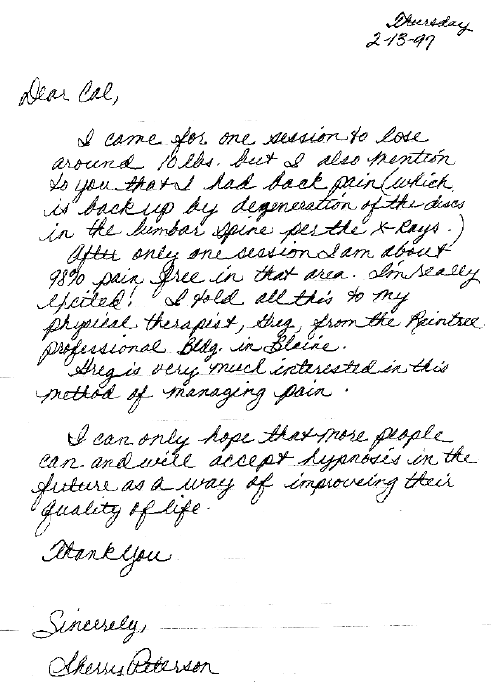 Thursday
2-13-97
Dear Cal,
I came for one session to lose
around 10 lbs. but I also mention
to you that I had back pain (which
is back up by degeneration of the discs
in the lumbar spine per the X-Rays.)
After only one session I am about
98% pain free in that area. I'm really
excited! I told all this to my
physical therapist, Greg, from the Raintree
Professional Bldg. in Blaine.
Greg is very much interested in this
method of managing pain.
I can only hope that more people
can and will accept hypnosis in the
future as a way of improveing their
quality of life.
Thank You
Sincerely,
Sherry Peterson